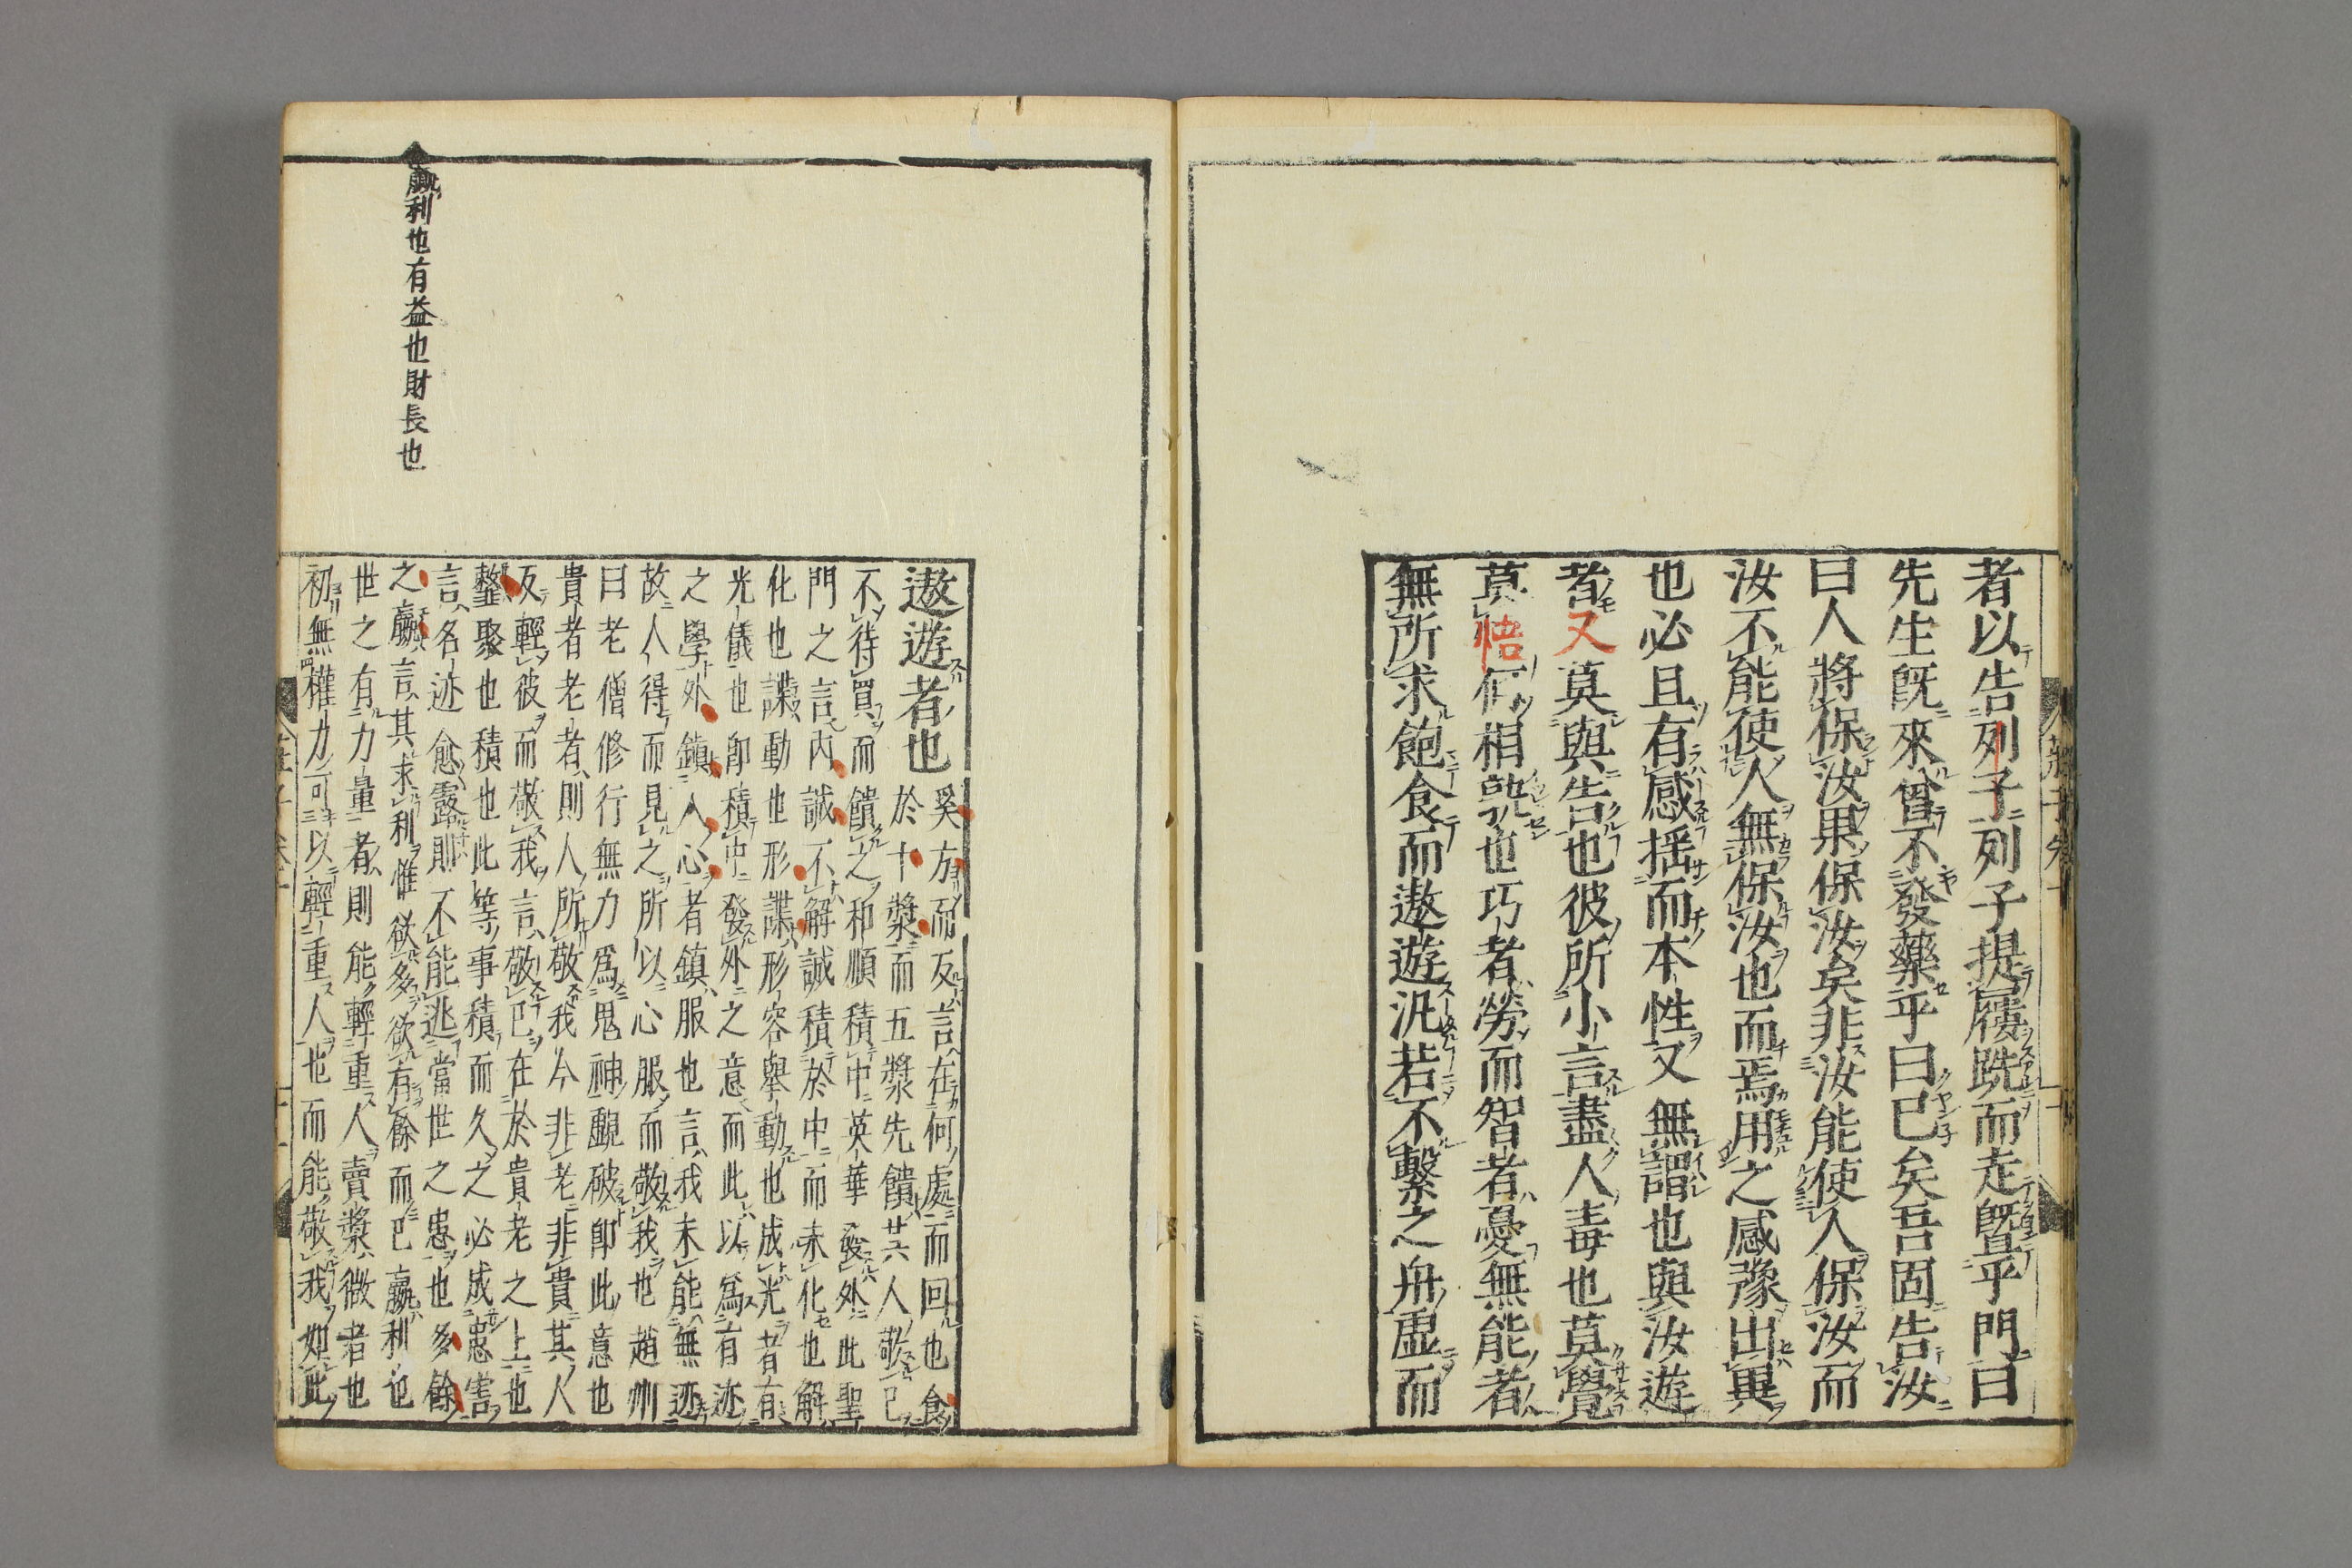 者以告列子列子提屨跣而走曁乎門曰
先生旣來曾不發藥乎曰已矣吾固告汝
曰人將保汝果保汝矣非汝能使人保汝而
汝不能使人無保汝也而焉用之感豫出異
也必且有感揺而本性又無謂也與汝遊
者又莫與告也彼所小言盡人毒也莫覺
莫悟何相孰也巧者勞而智者憂無能者
無所求飽食而遨遊汎若不繫之舟虛而
遨遊者也奚方而反言在何處而回也食
於十漿而五漿先饋共人敬已
不待買而饋之和順積中英華發外此聖
門之言內誠不解誠積於中而未化也解
化也諜動也形諜形容擧動也成光者有
光儀也卽積中發外之意而此以爲有迹
之學外鎮人心者鎮服也言我未能無迹
故人得而見之所以心服而敬我也趙州
曰老僧修行無力爲鬼神覷破卽此意也
貴者老者則人所敬我今非老非貴其人
反輕彼而敬我言敬已在於貴老之上也
韲聚也積也此等事積而久之必成患害
言名迹愈露則不能逃當世之患也多餘
之贏言其求利惟欲多欲有餘而已贏利也
世之有力量者則能輕重人賣漿微者也
初無權力可以輕重人也而能敬我如此
贏利也有益也財長也
莊子卷十
十一